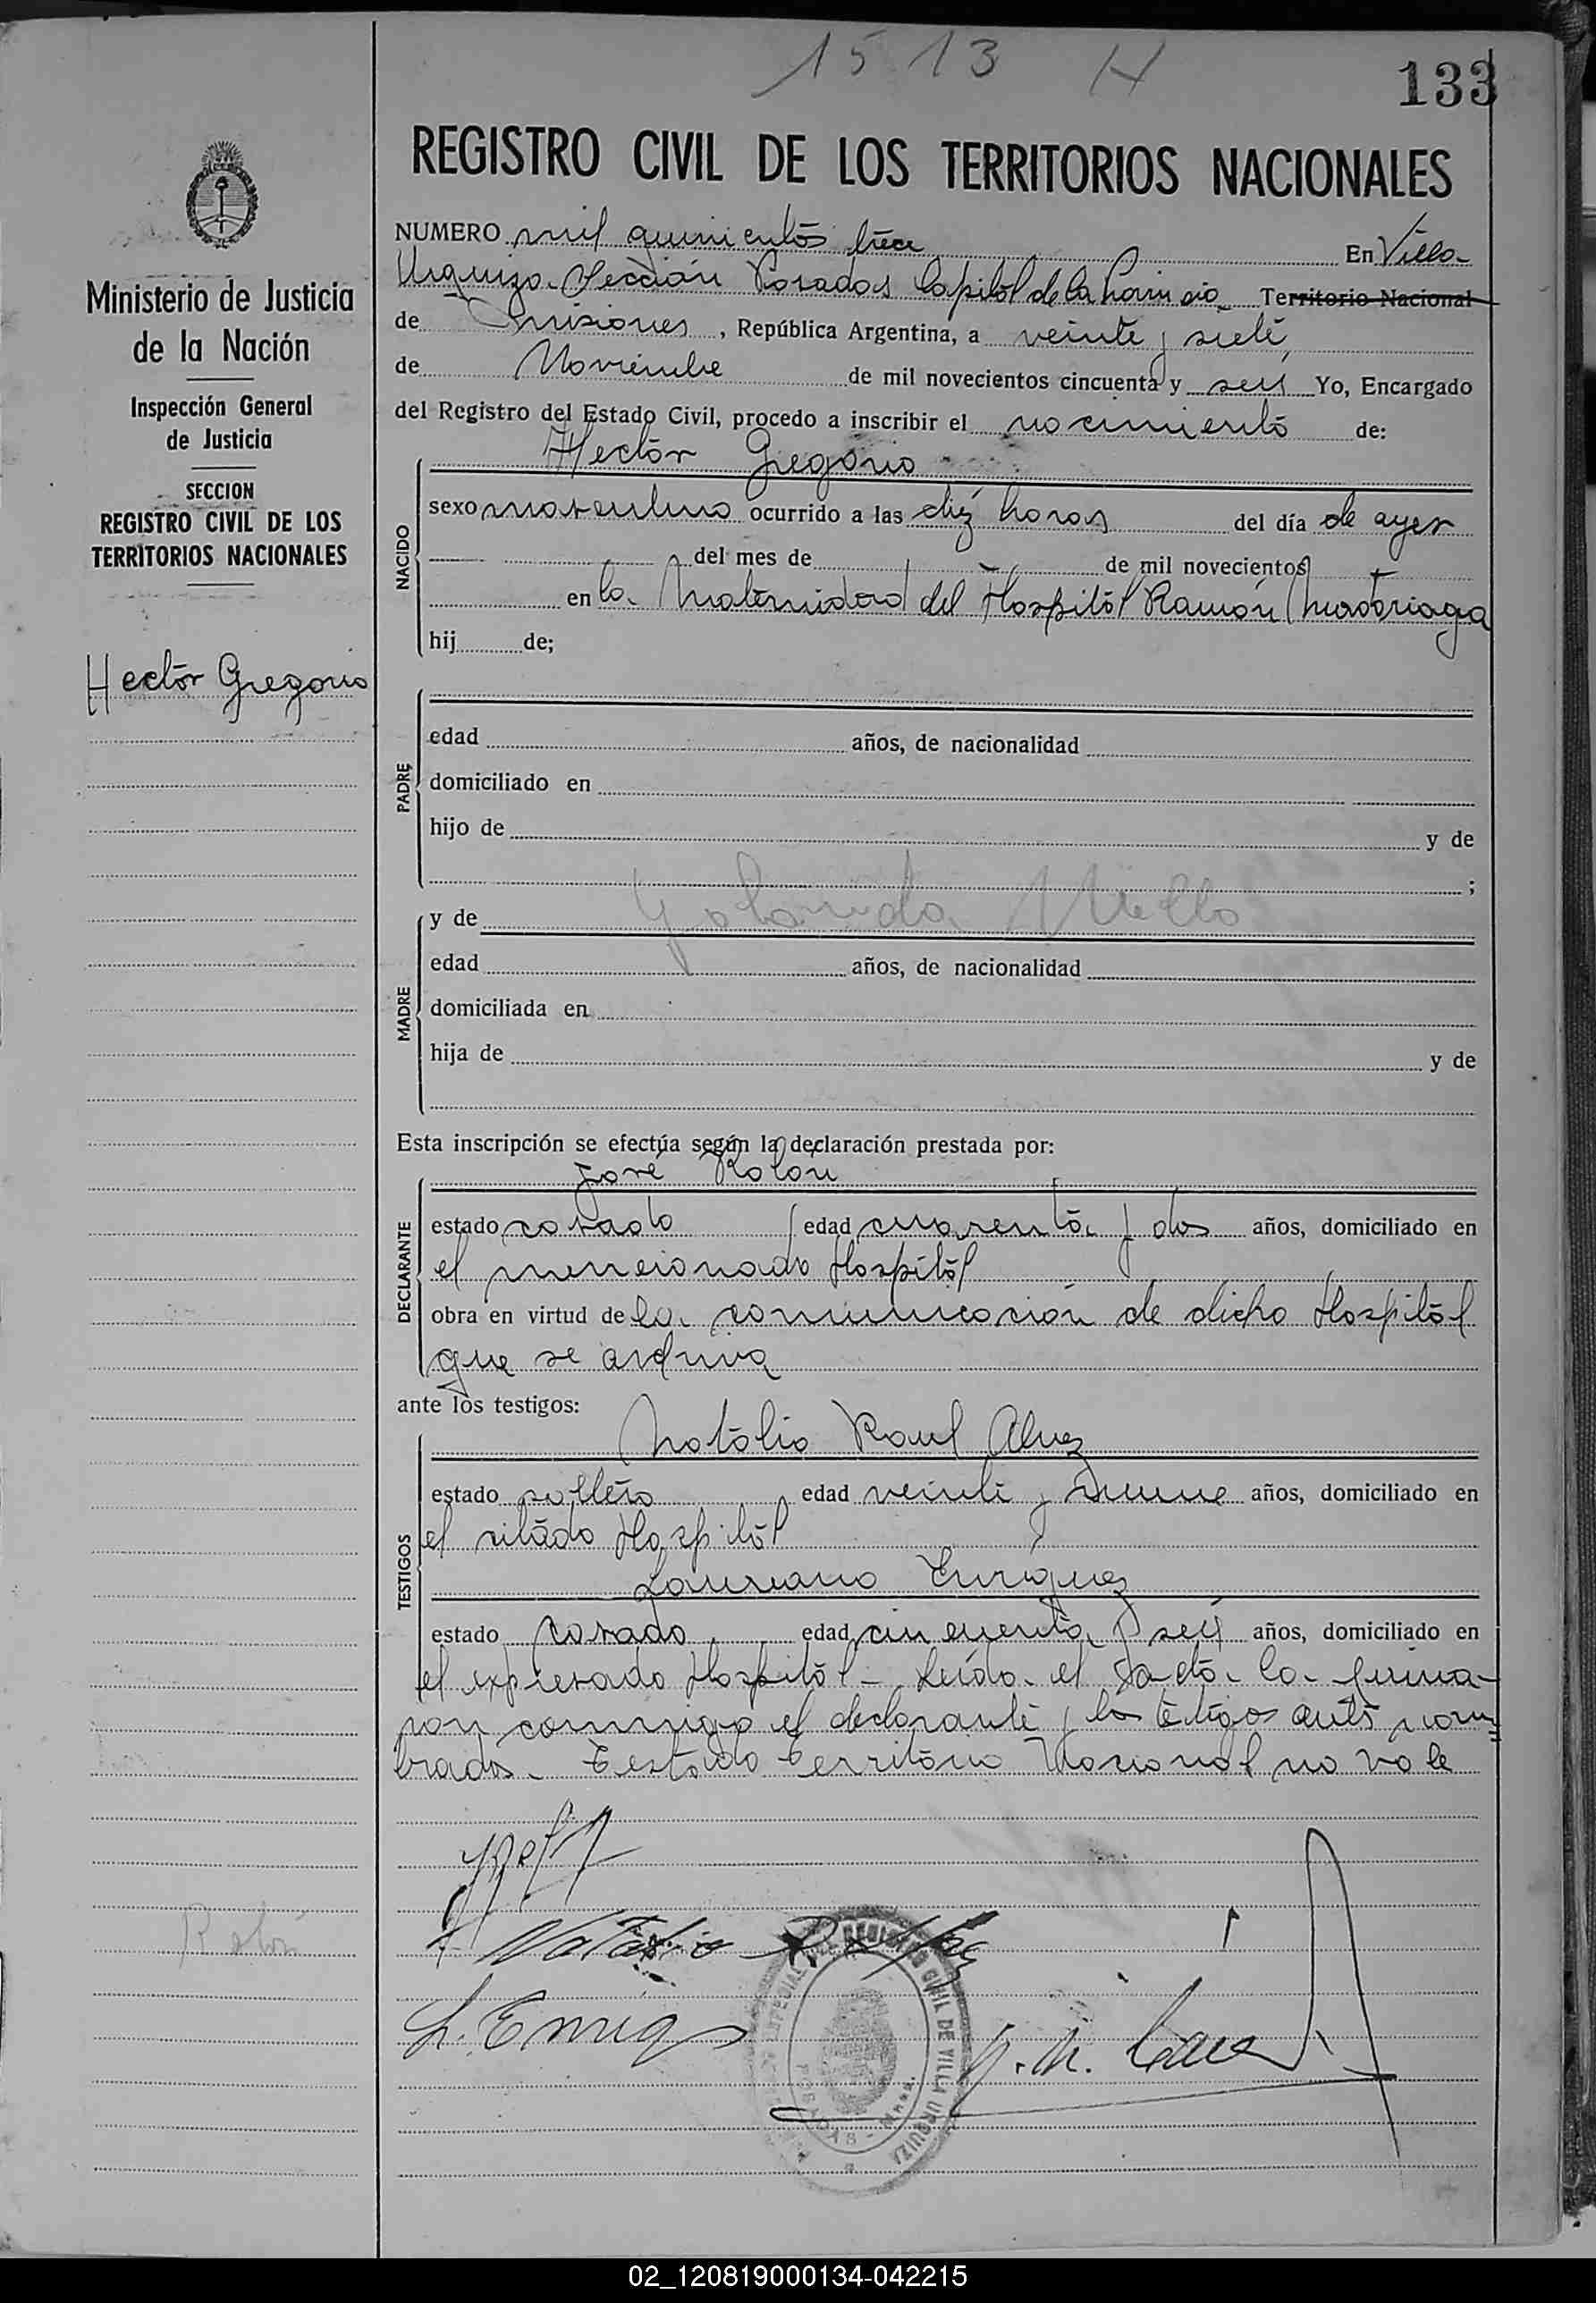 1513 H
133
REGISTRO CIVIL DE LOS TERRITORIOS NACIONALES
NUMERO mil quinientos trece En Villa
Urquiza Sección Posadas Capital de la Provincia Territorio Nacional
de Misiones, República Argentina, a veinte y siete
de Noviembre de mil novecientos cincuenta y seis Yo, Encargado
del Registro del Estado Civil, procedo a inscribir el nacimiento de:
Hector Gregorio
NACIDO
sexo masculino ocurrido a las diez horas del día de ayer
del mes de de mil novecientos
en la Maternidad del Hospital Ramón Madariaga
hij de;
PADRE
edad años, de nacionalidad
domiciliado en
hijo de y de
;
MADRE
y de Yolanda Mello
edad años, de nacionalidad
domiciliada en
hija de y de
Esta inscripción se efectúa según la declaración prestada por:
José Rolón
DECLARANTE
estado casado edad cuarenta y dos años, domiciliado en
el mencionado Hospital
obra en virtud de la comunicación de dicho Hospital
que se archiva
ante los testigos:
Natalio Raul Alvez
TESTIGOS
estado soltero edad veinte y nueve años, domiciliado en
el citado Hospital
Laureano Enriquez
estado casado edad cincuenta y seis años, domiciliado en
el expresado Hospital - Leída el acta la firma-
ron conmigo el declarante y los testigos antes nom=
brados. Testado Territorio Nacional no vale
Natalio R. Alvez
L. Enriqz
REGISTRO CIVIL DE VILLA URQUIZA
POSADAS
Ministerio de Justicia
de la Nación
Inspección General
de Justicia
SECCION
REGISTRO CIVIL DE LOS
TERRITORIOS NACIONALES
Hector Gregorio
Rolón
02_120819000134-042215